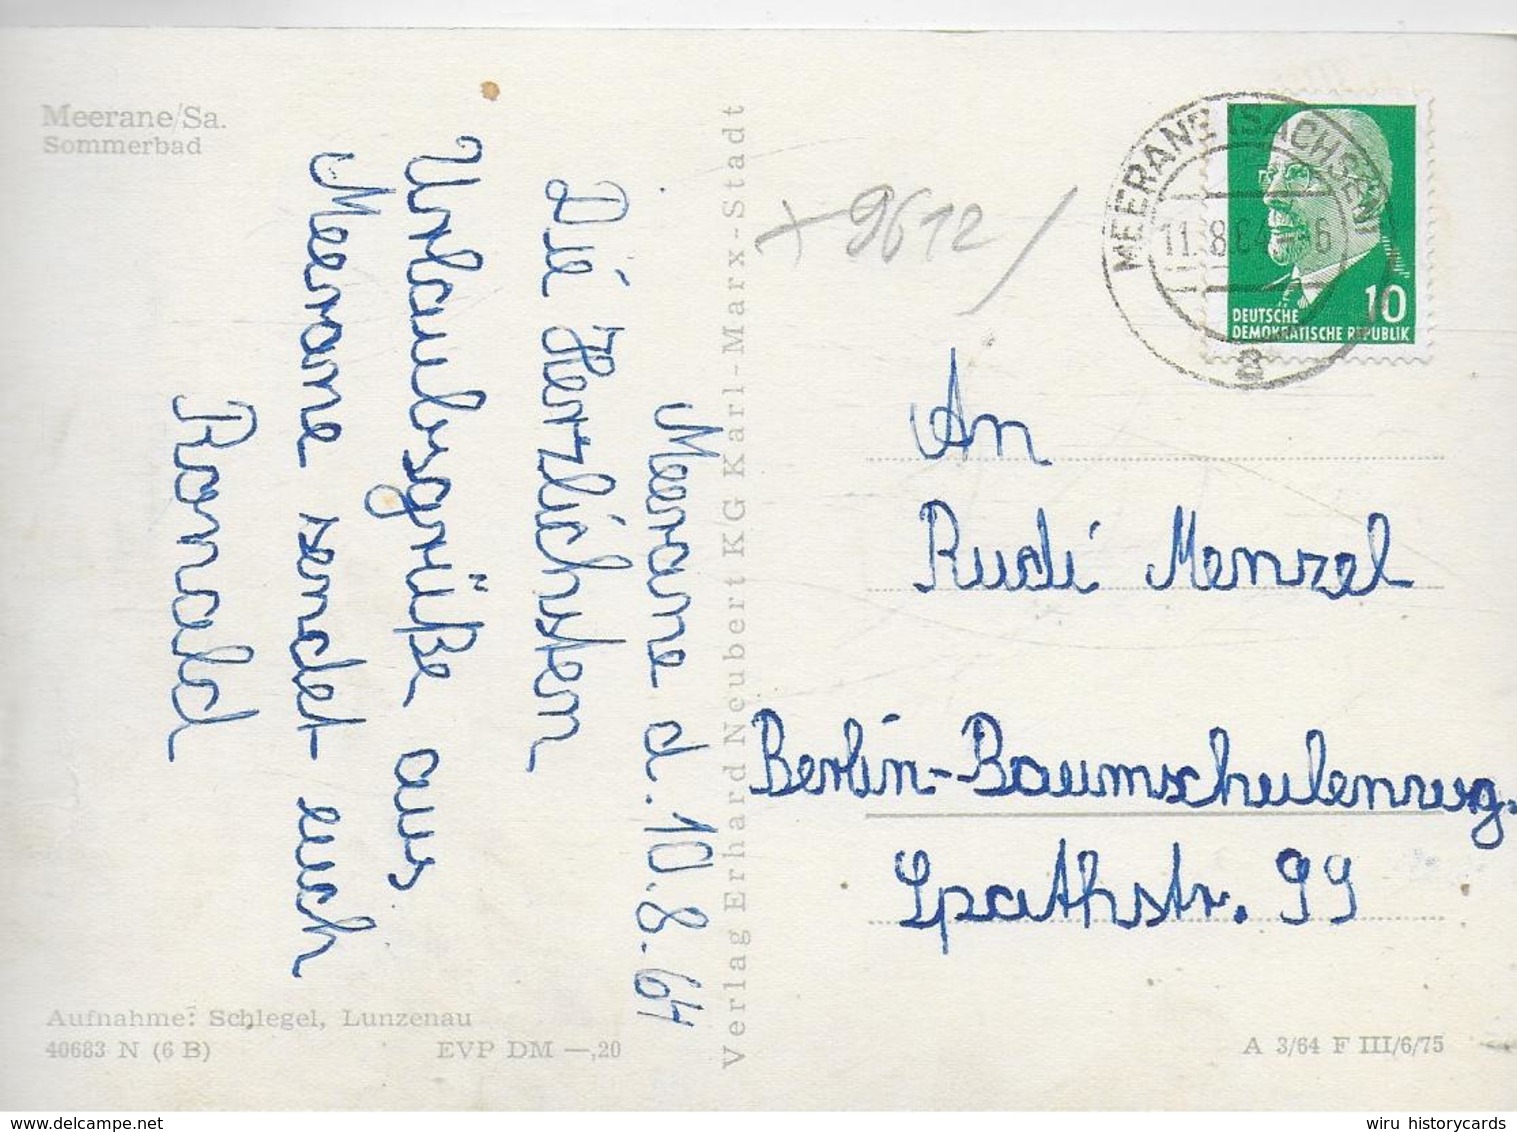 Meerane/Sa.
Sommerbad
Meerane d. 10.8.64
Die Herzlichsten
Urlaubsgrüße aus
Meerane sendet euch
Ronald
Aufnahme: Schlegel, Lunzenau
40683 N (6 B)
EVP DM —,20
Verlag Erhard Neubert KG Karl-Marx-Stadt
+ 9612 /
MEERANE (SACHSEN)
11.8.64
a
10
DEUTSCHE
DEMOKRATISCHE REPUBLIK
An
Rudi Menzel
Berlin-Baumschulenweg.
Spathstr. 99
A 3/64 F III/6/75
wiru historycards